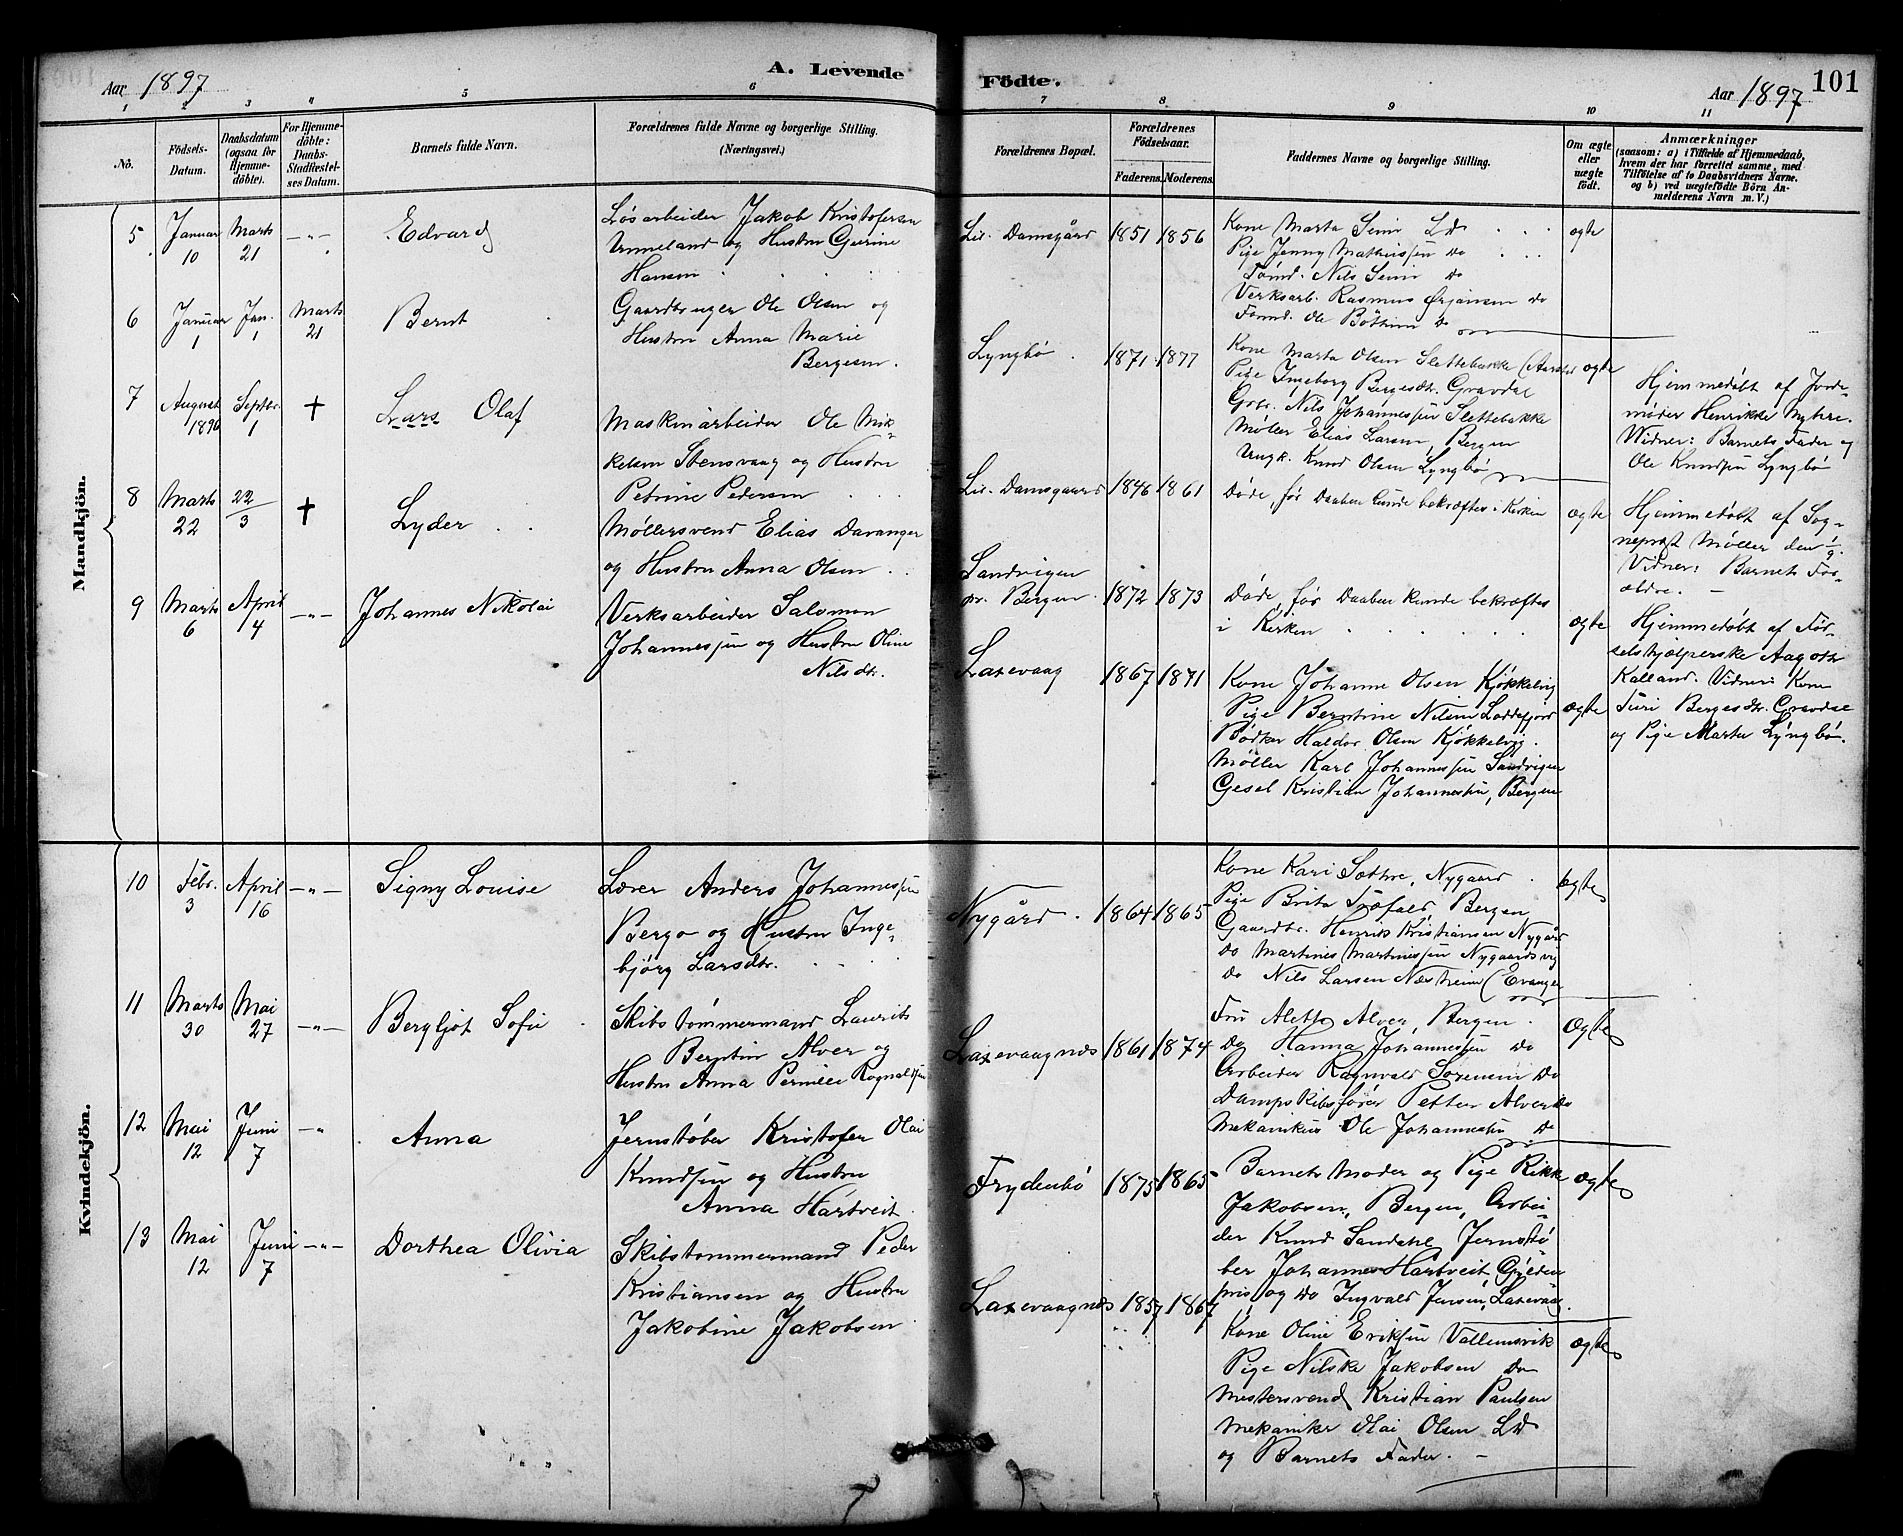 Aar 1897
A. Levende
Födte.
Aar 1897
101
1 2 3 4 5 6 7 8 9 10 11
No.
Födsels-
Datum.
Daabsdatum
(ogsaa for
Hjemme-
döbte).
For Hjemme-
döbte:
Daabs-
Stadfæstel-
ses Datum.
Barnets fulde Navn.
Forældrenes fulde Navne og borgerlige Stilling.
(Næringsvei.)
Forældrenes Bopæl.
Forældrenes
Födselsaar.
Faderens. Moderens.
Faddernes Navne og borgerlige Stilling.
Om ægte
eller
uægte
födt.
Anmærkninger
(saasom: a) i Tilfælde af Hjemmedaab,
hvem der har forrettet samme, med
Tilföielse af to Daabsvidners Navne.
og b) ved uægtefödte Börn An-
melderens Navn m. V.)
Mandkjön.
5
Januar
10
Marts
21
Edvard
Løsarbeider Jakob Kristofersen
Unneland og Hustru Gurine
Hansen
Lil. Damsgård 1851 1856
Kone Marta Seim Ld
Pige Jenny Mathiessen Do
Tømd. Nils Seim Do
Verksarb. Rasmus Ørjansen Do
Tømd. Ole Bøthun Do
ægte
6
Januar
1
Jan.
1
Marts
21
Bernt
Gaardbruger Ole Olsen og
Hustru Anna Marie
Bergesen.
Lyngbø 1871 1877
Kone Marta Olsen Slettebakke (Aarstad
Pige Ingeborg Bergesdtr. Gravdal
Grbr. Nils Johannessen Slettebakke
Møller Elias Larsen, Bergen
Ungk. Knud Olsen Lyngbø
ægte
Hjemmedøbt af Jorde-
moder Henrikke Nybre.
Vidner: Barnets Fader og
Ole Knudsen Lyngbø
7
August
1896
Septbr.
1
†
Lars Olaf
Maskinarbeider Ole Mik-
kelsen Stensvaag og Hustru
Petrine Pedersen
Lil. Damsgaard 1846 1861
Døde, før Daaben kunde bekræftes i Kirken
ægte
Hjemmedøbt af Sog-
neprest Møller den 1/9.
Vidner: Barnets For-
ældre. –
8
Marts
22
22/3
†
Lyder
Møllersvend Elias Davanger
og Hustru Anna Olsen
Sandvigen
pr. Bergen 1872 1873
Døde, før Daaben kunde bekræftes
i Kirken
ægte
Hjemmedøbt af Fød-
selshjælperske Aagoth
Kalland. Vidner: Kone
Turi Bergesdtr. Gravdal
og Pige Marta Lyngbø.
9
Marts
6
April
4
Johannes Nikolai
Verksarbeider Salomon
Johannessen og Hustru Oline
Nilsdtr.
Laxevaag 1867 1871
Kone Johanne Olsen Kjøkkelvig
Pige Berntine Nilsen Loddefjord
Bødker Haldor Olsen Kjøkkelvig.
Møller Karl Johannessen Sandvigen
Gesel Kristian Johannessen, Bergen
ægte
Kvindekjön.
10
Febr.
3
April
16
Signy Louise
Lærer Anders Johannessen
Bergo og Hustru Inge-
bjørg Larsdtr.
Nygård 1864 1865
Kone Kari Sæthre, Nygaard
Pige Brita Tofald Bergen
Gaardbr. Henrik Kristiansen Nygård
Do Martines Martinessen Nygaardsvig
Do Nils Larsen Næstheim (Evanger
ægte
11
Marts
30
Mai
27
Bergljot Sofie
Skibstømmermand Laurits
Berntin Alver og
Hustru Anna Pernille Rognaldsen
Laxevaagnes 1861 1874
Fru Aletta Alver, Bergen.
Do Hanna Johannessen Do
Arbeider Ragnvald Sørensen Do
Dampskibsfører Petter Alver Do
Mekanikus Ole Johannessen Do
ægte
12
Mai
12
Juni
7
Anna
Jernstøber Kristofer Olai
Knudsen og Hustru
Anna Hartveit.
Frydenbø 1875 1865
Barnets Moder og Pige Rikke
Jakobsen, Bergen, Arbei-
der Knud Sandahl, Jernstø-
ber Johannes Hartveit, Gyldenpris og Do Ingvald Jensen, Laxevaag.
ægte
13
Mai
12
Juni
7
Dorthea Olivia
Skibstømmermand Peder
Kristiansen og Hustru
Jakobine Jakobsen
Laxevaagnes 1857 1867
Kone Oline Eriksen Vallemsvik
Pige Nilska Jakobsen Do
Mestersvend Kristian Paulsen
Mekaniker Olai Olsen Ld
og Barnets Fader. –
ægte